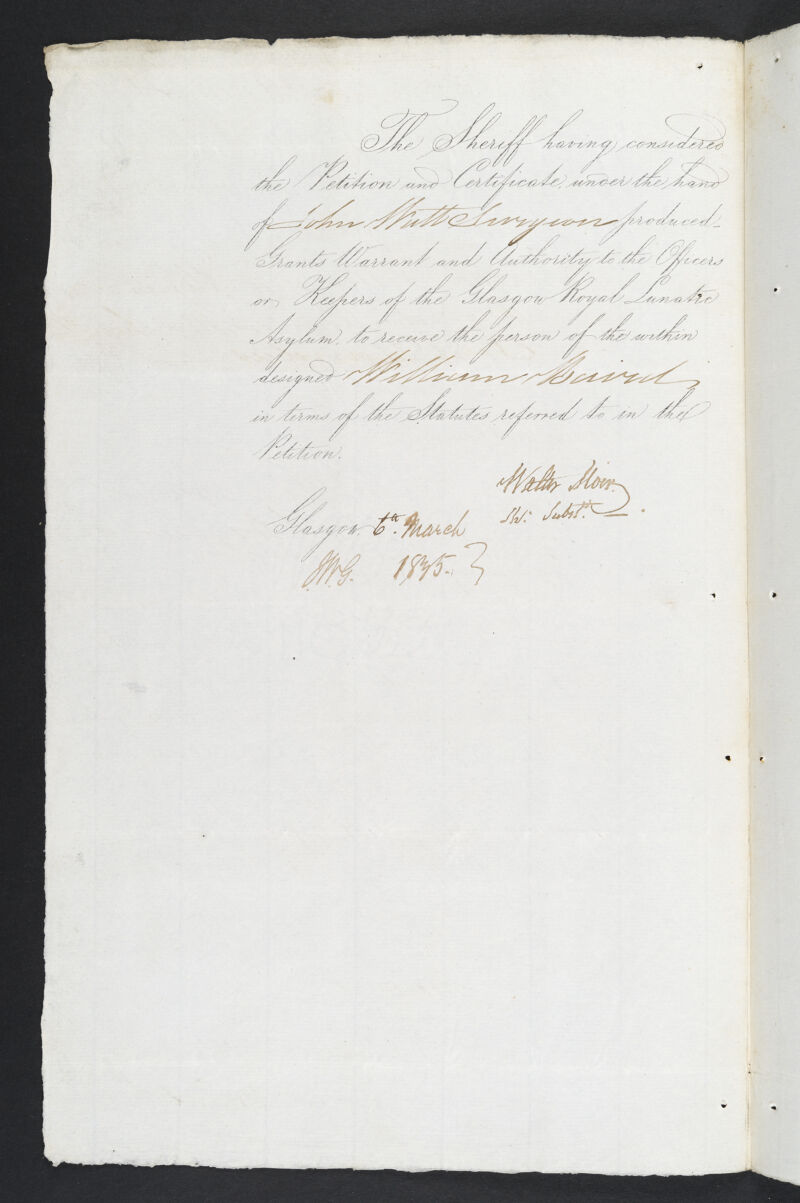 The Sheriff having considered
the Petition and Certificate under the hand
of John Watt Surgeon produced_
Grants Warrant and Authority to the Officers
or Keepers of the Glasgow Royal Lunatic
Asylum to receive the person of the within
designed William Baird
in terms of the Statutes referred to in the
Petition.
Walter Moir
Shf. Subst.
Glasgow 6th. March
1835.